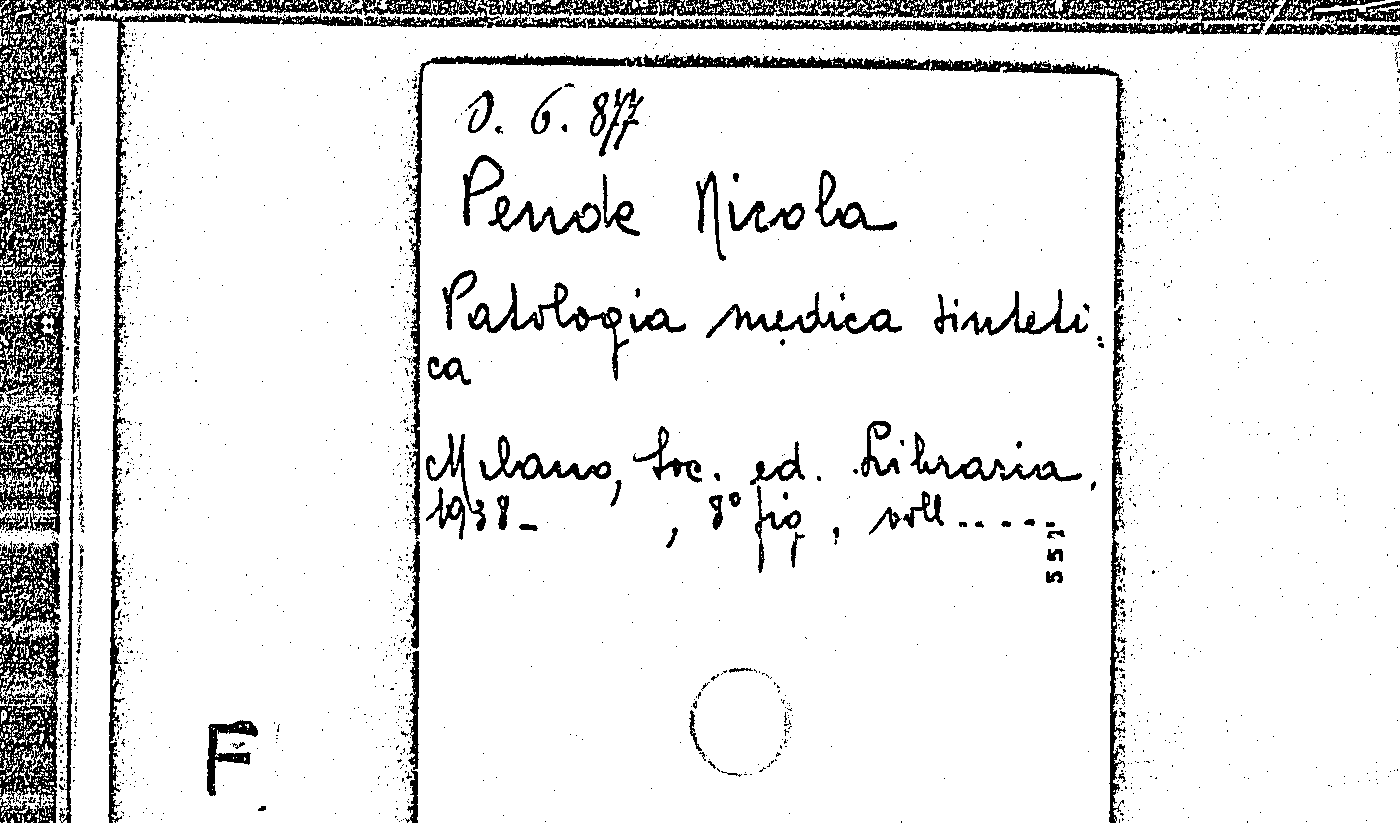 O. 6. 877
Pende Nicola
Patologia medica sinteti
ca
Milano, Soc. ed. Libraria,
1938- , 8° fig, voll.....
551
F